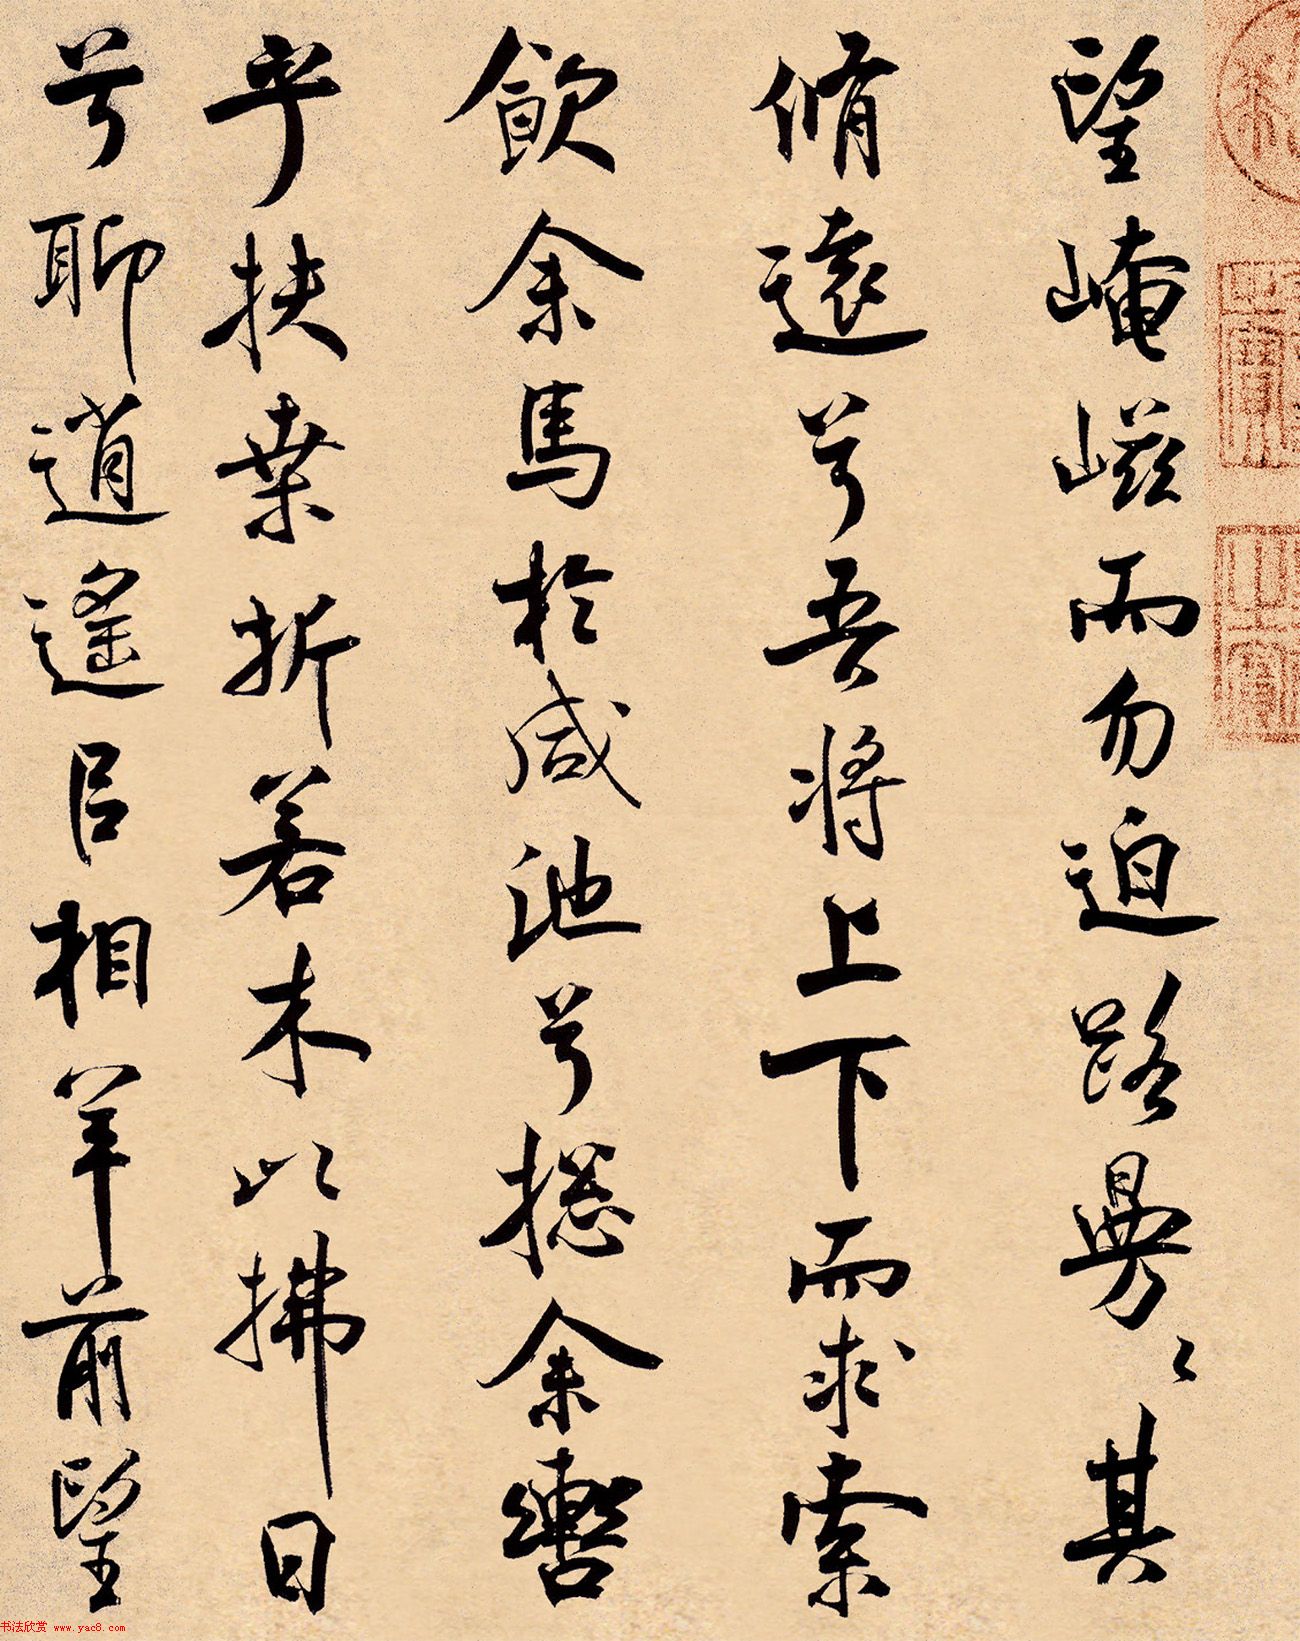 望崦嵫而勿迫路曼〻其
脩遠兮吾將上下而求索
飲余馬於咸池兮摠余轡
乎扶桒折若木以拂日
兮聊逍遙㠯相羊前望
之寶
之寶
书法欣赏 www.yac8.com